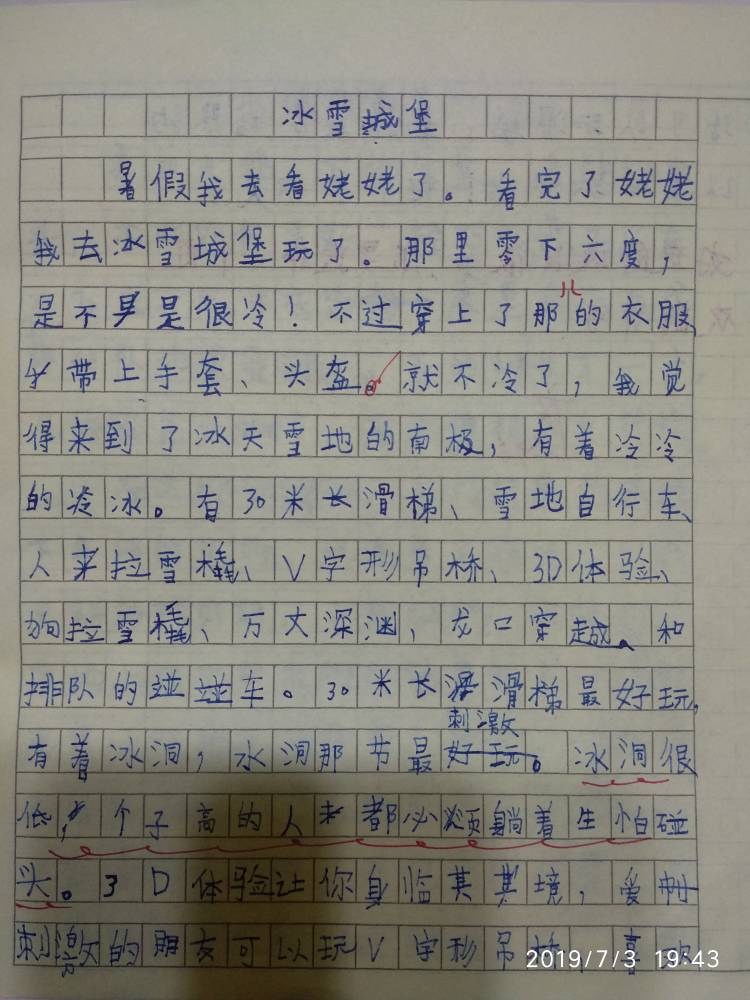 冰雪城堡
暑假我去看姥姥了。看完了姥姥
我去冰雪城堡玩了。那里零下六度，
儿
是不是很冷！不过穿上了那的衣服、
带上手套、头盔。就不冷了，我觉
得来到了冰天雪地的南极，有着冷冷
的冷冰。有30米长滑梯、雪地自行车、
人来拉雪橇、V字形吊桥、3D体验、
狗拉雪橇、万丈深渊、龙口穿越、和
排队的碰碰车。30米长滑梯最好玩，
刺激
有着冰洞，冰洞那节最好玩。冰洞很
低，个子高的人都必须躺着生怕碰
头。3D体验让你身临其其境，爱
刺激的朋友可以玩V字形吊桥，喜欢
2019/7/3 19:43